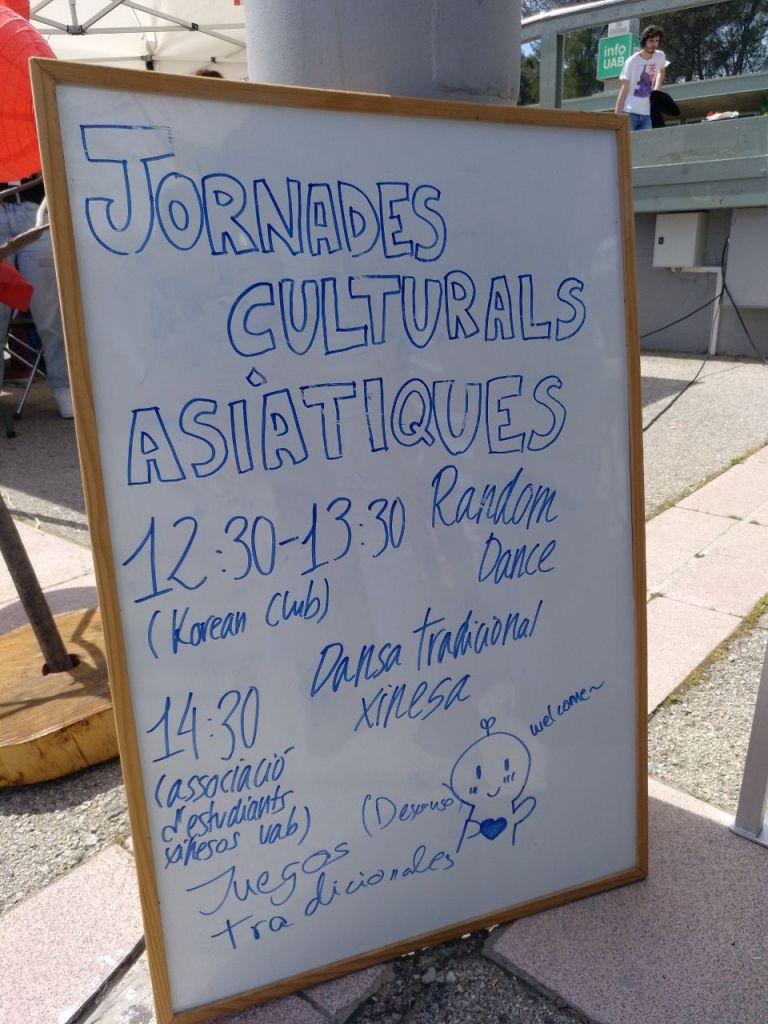 info
UAB
JORNADES
CULTURALS
ASIÀTIQUES
12:30-13:30 Random
Dance
(Korean Club)
14:30 Dansa tradicional
xinesa
(associació
d'estudiants
xinesos uab)
welcome~
(Descanso)
Juegos
tradicionales